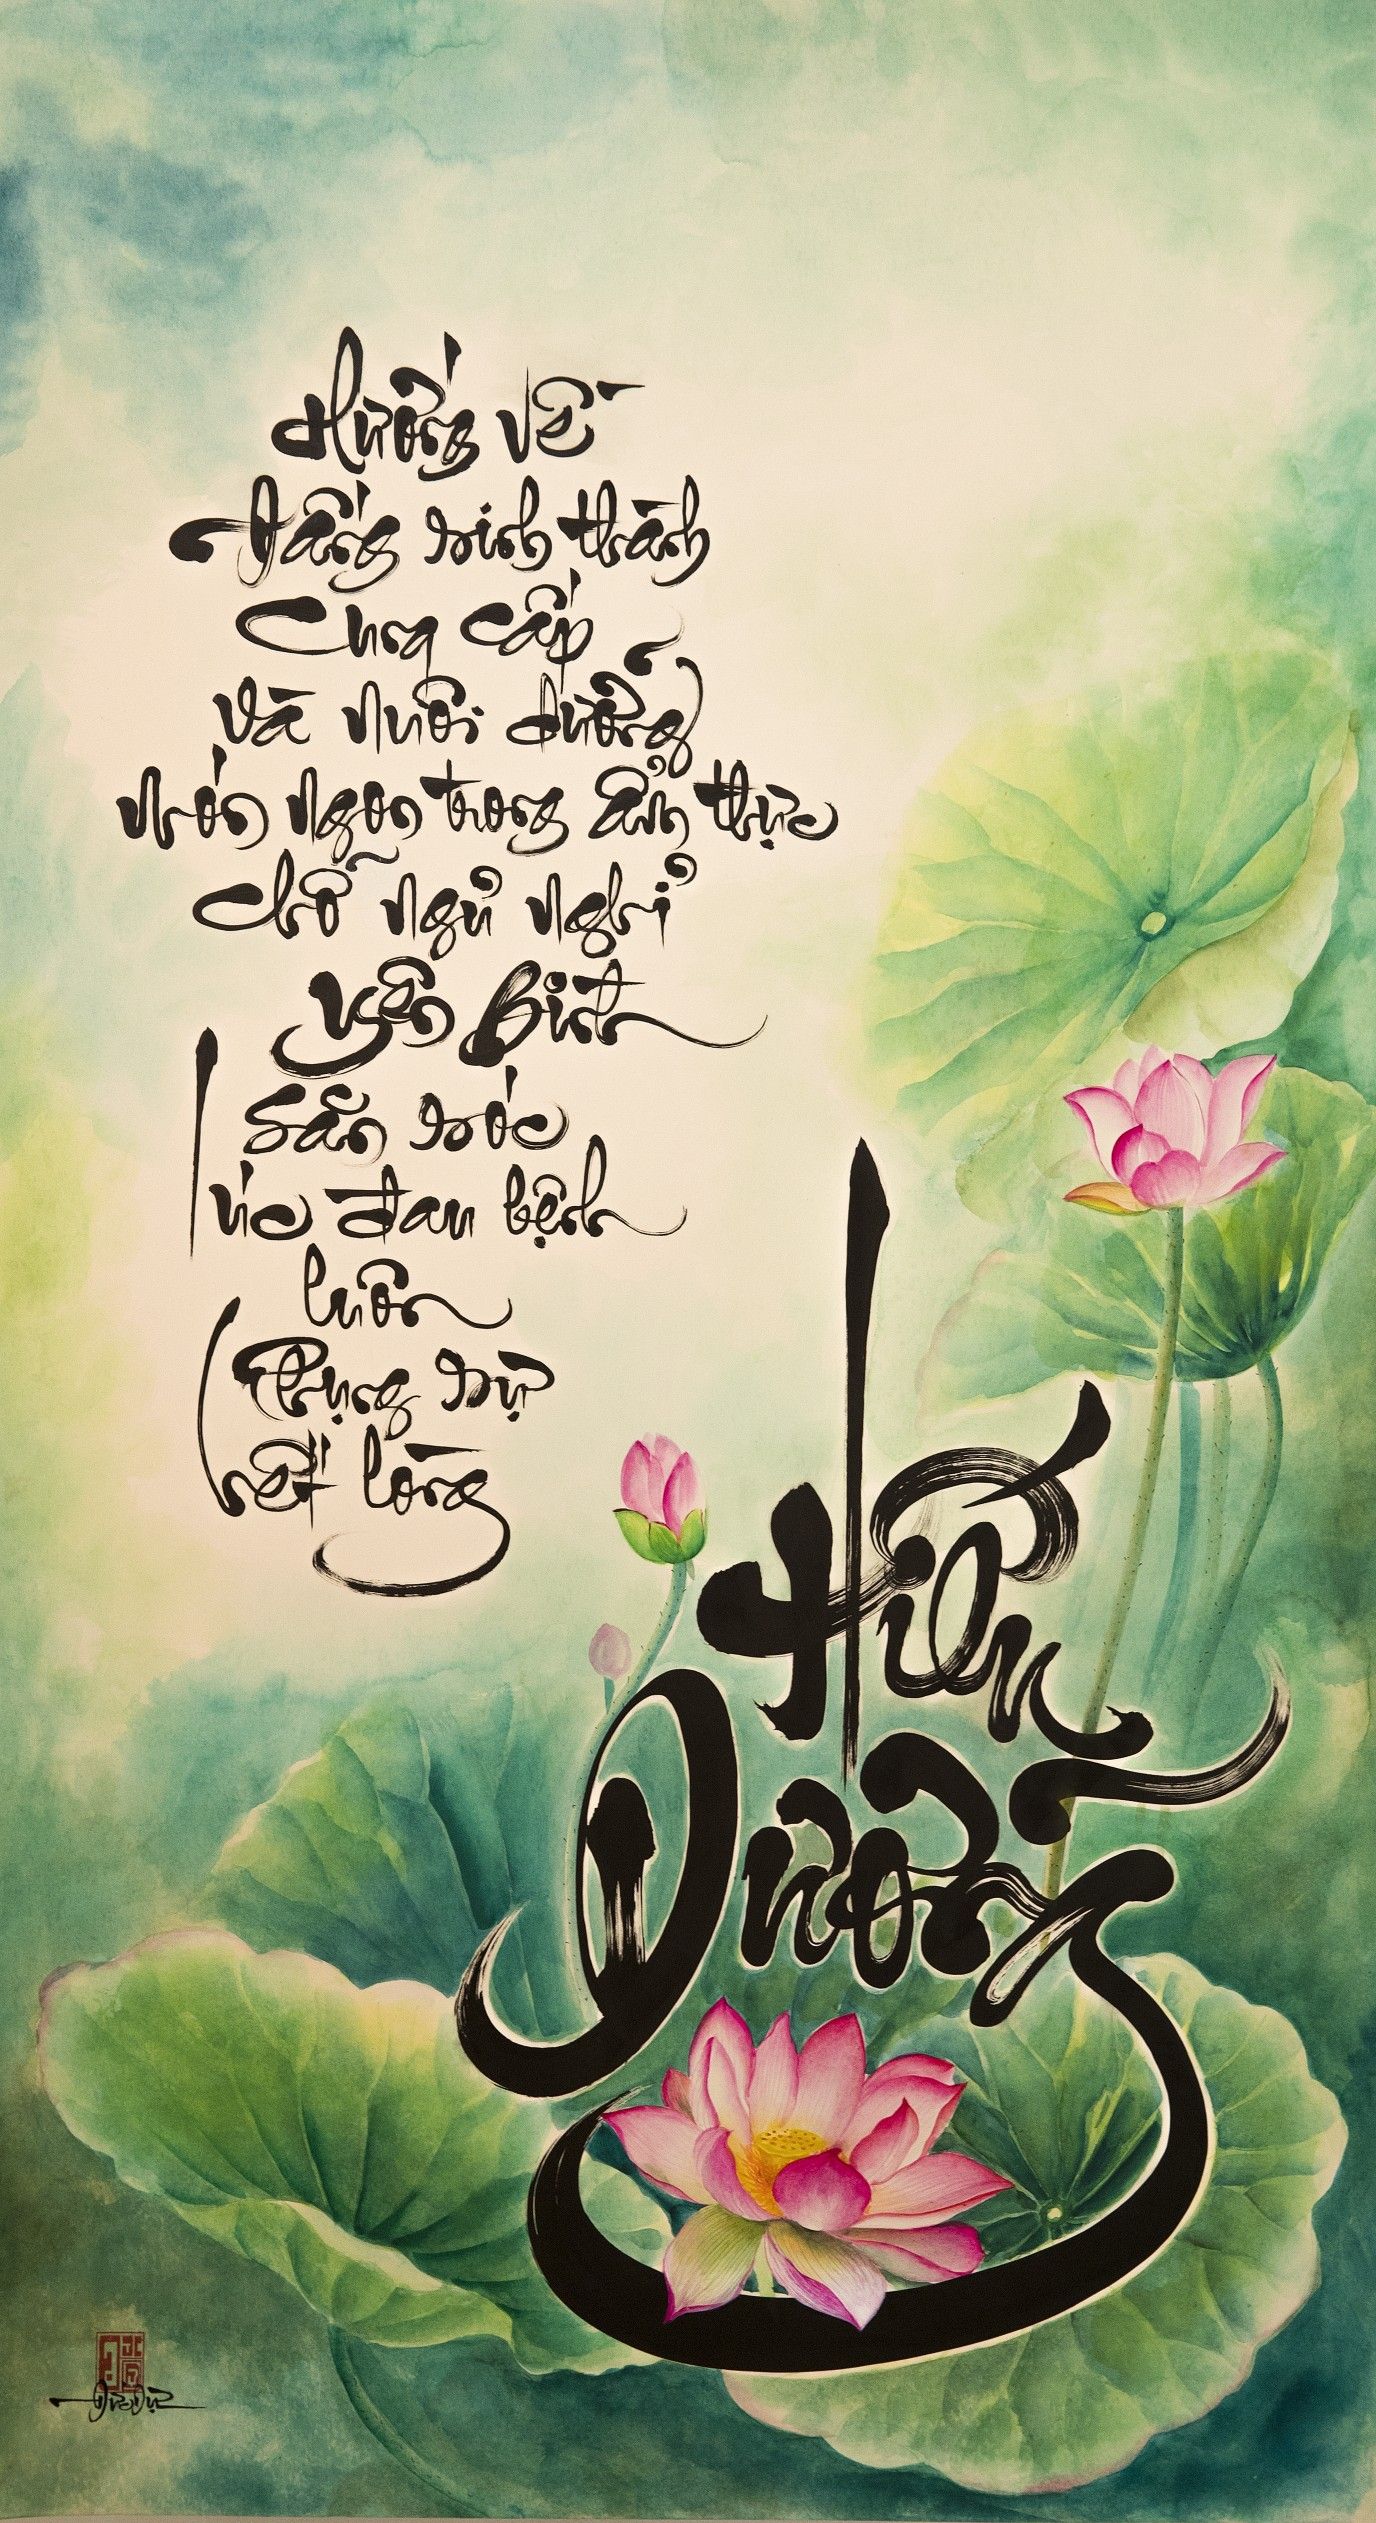 Hướng về
đấng sinh thành
Cung cấp
và nuôi dưỡng
món ngon trong ẩm thực
chỗ ngủ nghỉ
yên bình
săn sóc
lúc đau bệnh
luôn
phụng sự
hết lòng
Hiếu
Dưỡng